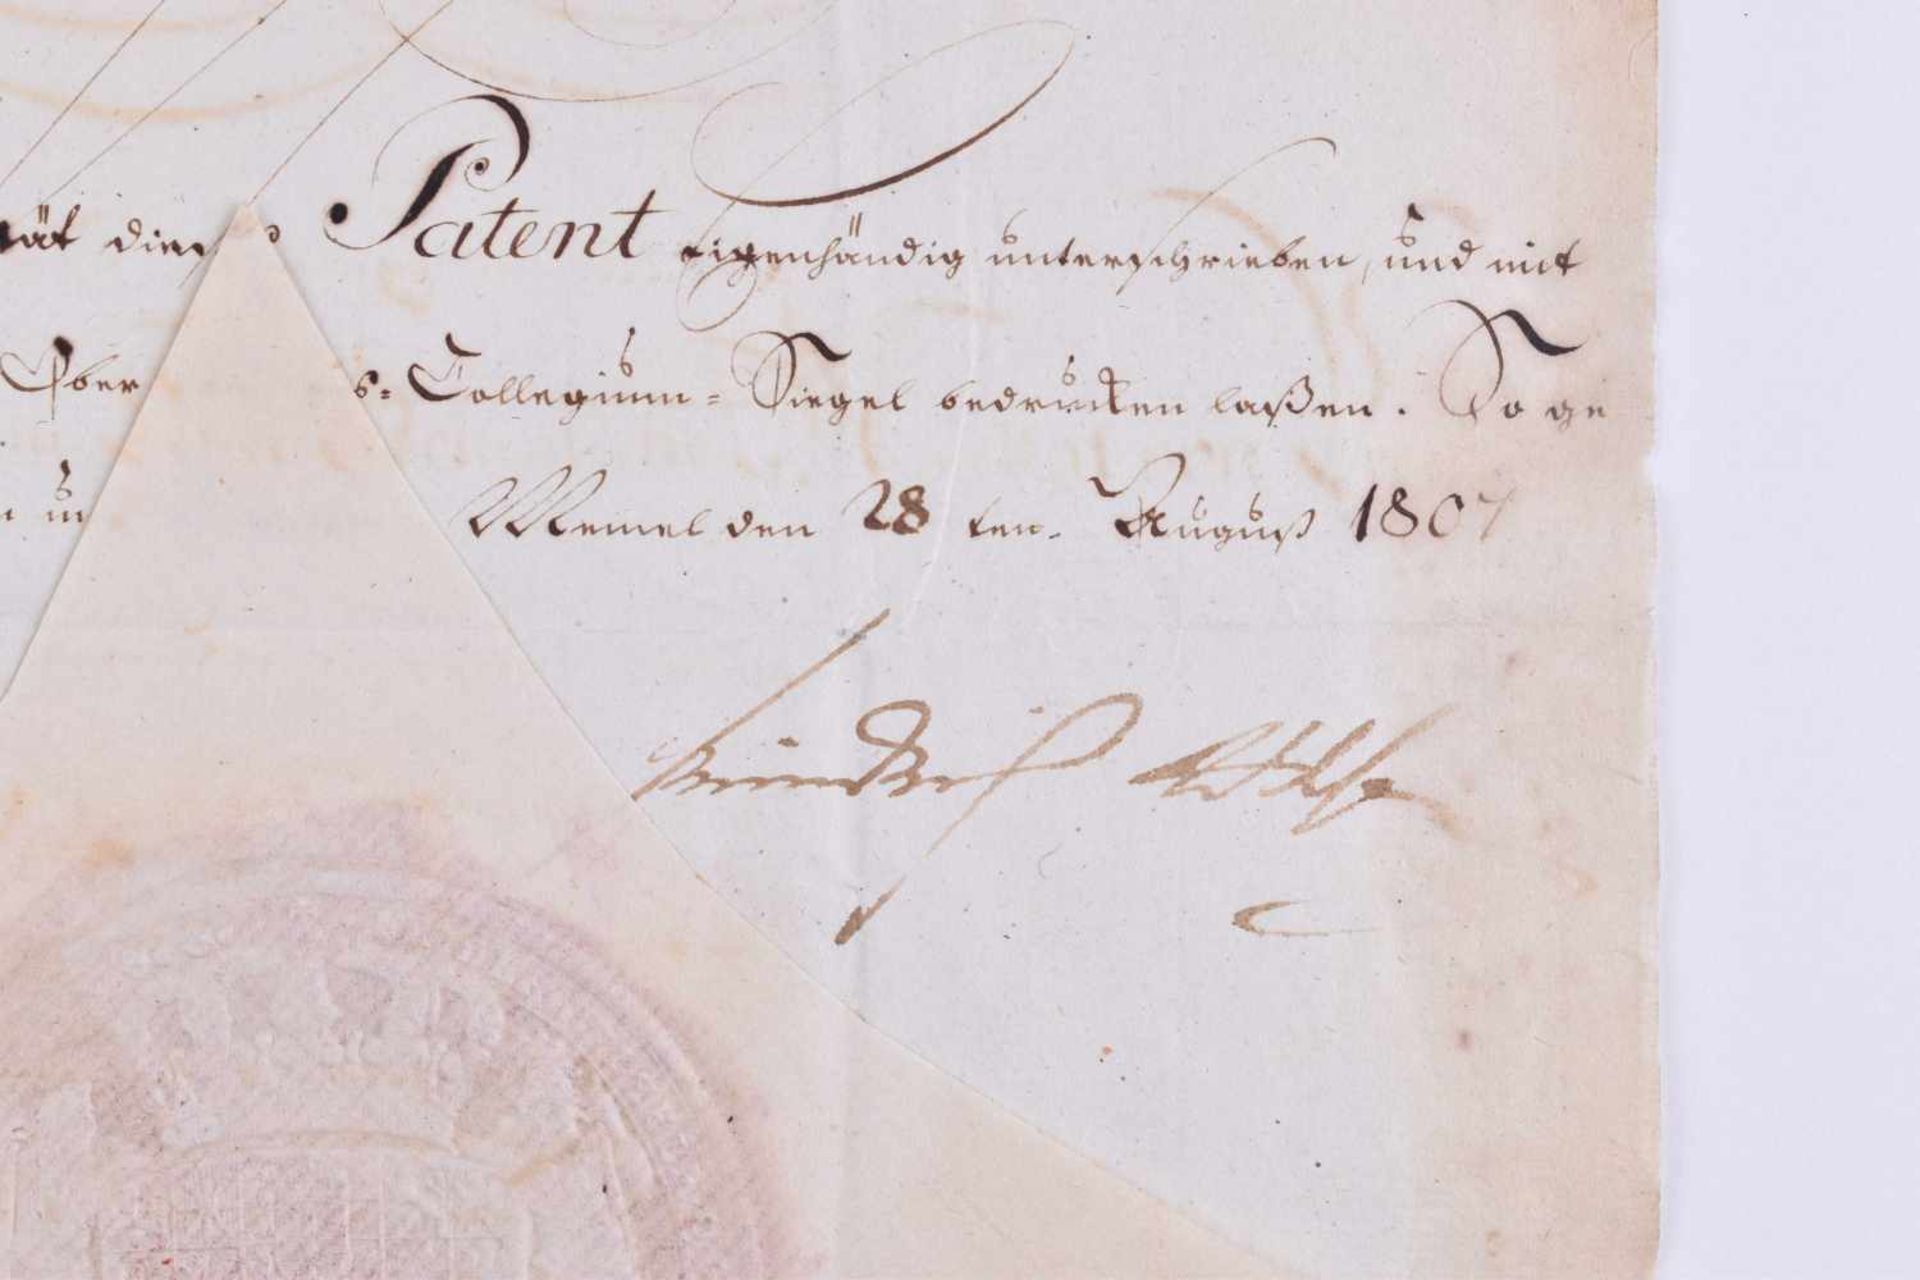 tät dieses Patent eigenhändig unterschrieben, und mit
Ober s-Collegium-Siegel bedrucken laßen. So ge
in Memel den 28 ten. August 1807
Friedrich Wilhelm